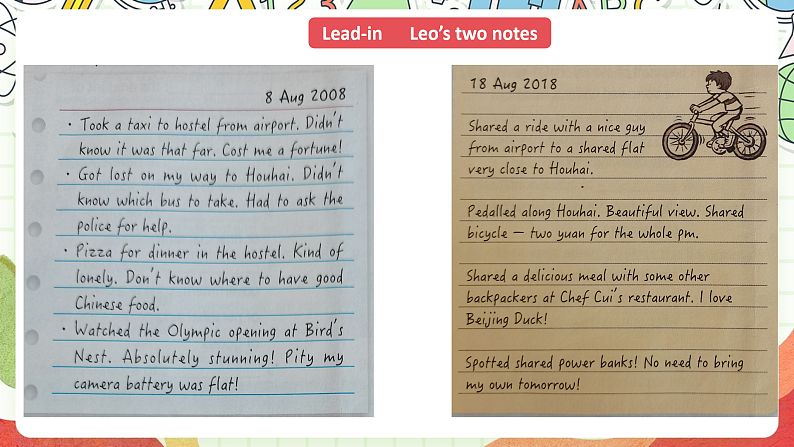 Lead-in Leo's two notes
8 Aug 2008
• Took a taxi to hostel from airport. Didn't
know it was that far. Cost me a fortune!
• Got lost on my way to Houhai. Didn't
know which bus to take. Had to ask the
police for help.
• Pizza for dinner in the hostel. Kind of
lonely. Don't know where to have good
Chinese food.
• Watched the Olympic opening at Bird's
Nest. Absolutely stunning! Pity my
camera battery was flat!
18 Aug 2018
Shared a ride with a nice guy
from airport to a shared flat
very close to Houhai.
Pedalled along Houhai. Beautiful view. Shared
bicycle — two yuan for the whole pm.
Shared a delicious meal with some other
backpackers at Chef Cui's restaurant. I love
Beijing Duck!
Spotted shared power banks! No need to bring
my own tomorrow!